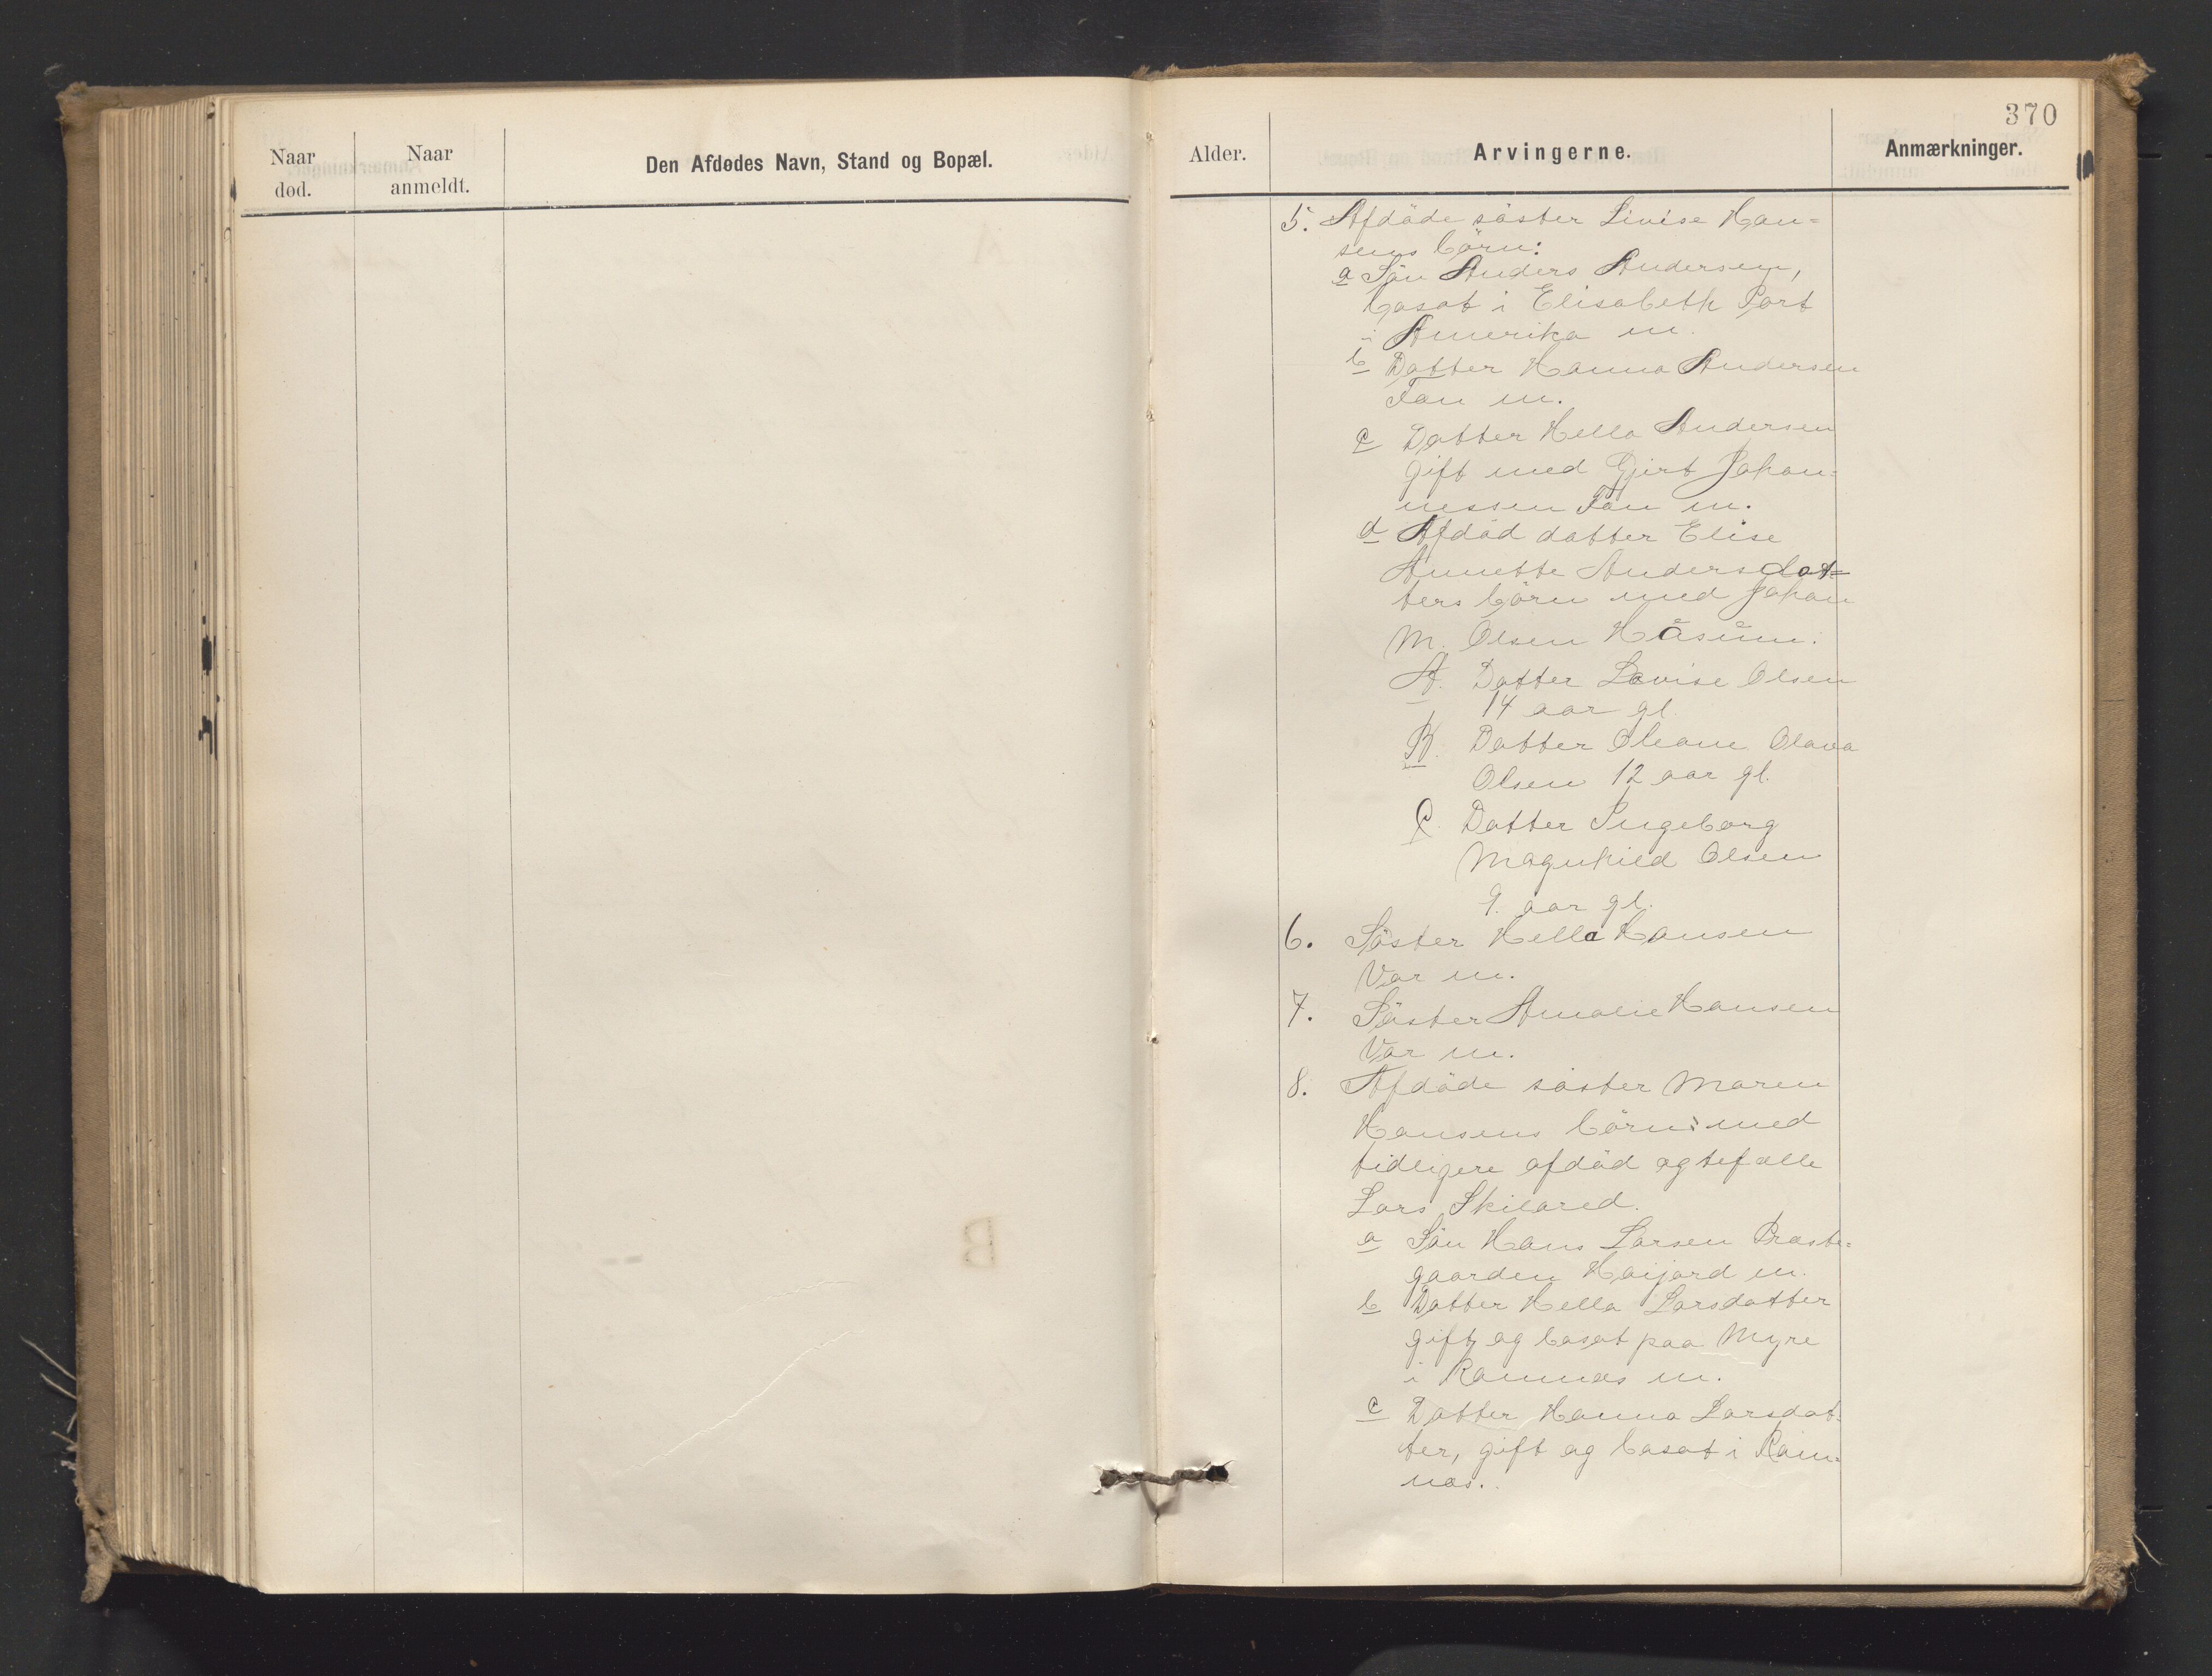 370
Naar død.
Naar anmeldt.
Den Afdødes Navn, Stand og Bopæl.
Alder.
Arvingerne.
Anmærkninger.
5. Afdöde söster Livise Han=
sens börn:
a Sön Anders Andersen,
bosat i Elisabeth Port
i Amerika m.
b Datter Hanna Andersen
Fon m.
c Datter Hella Andersen
gift med Gjert Johan=
nessen Fon m.
d Afdöd datter Elise
Annette Andersdat=
ters börn med Johan
M. Olsen Håsum.
A. Datter Lovise Olsen
14 aar gl.
B. Datter Oleane Olava
Olsen 12 aar gl.
C. Datter Ingeborg
Magnhild Olsen
9. aar gl.
6. Söster Hella Hansen
Vær m.
7. Söster Amalie Hansen
Vær m.
8. Afdöde söster Maren
Hansens börn: med
tidligere afdöd ægtefælle
Lars Skilared.
a Sön Hans Larsen Præste=
gaarden Høijord m.
b Datter Hella Larsdatter
gift og bosat paa Myre
i Ramnæs m.
c Datter Hanna Larsdat=
ter, gift og bosat i Ram=
næs.